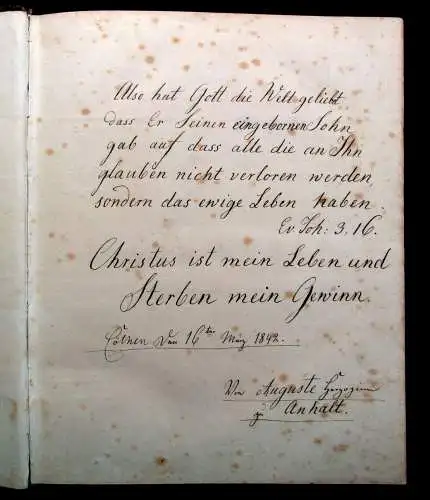 Also hat Gott die Welt geliebt
dass Er Seinen eingebornen Sohn
gab auf dass alle die an Ihn
glauben nicht verloren werden,
sondern das ewige Leben haben.
Ev Joh: 3. 16.
Christus ist mein Leben und
Sterben mein Gewinn.
Cöthen den 16ten März 1842.
Von Auguste Herzoginn
zu Anhalt.